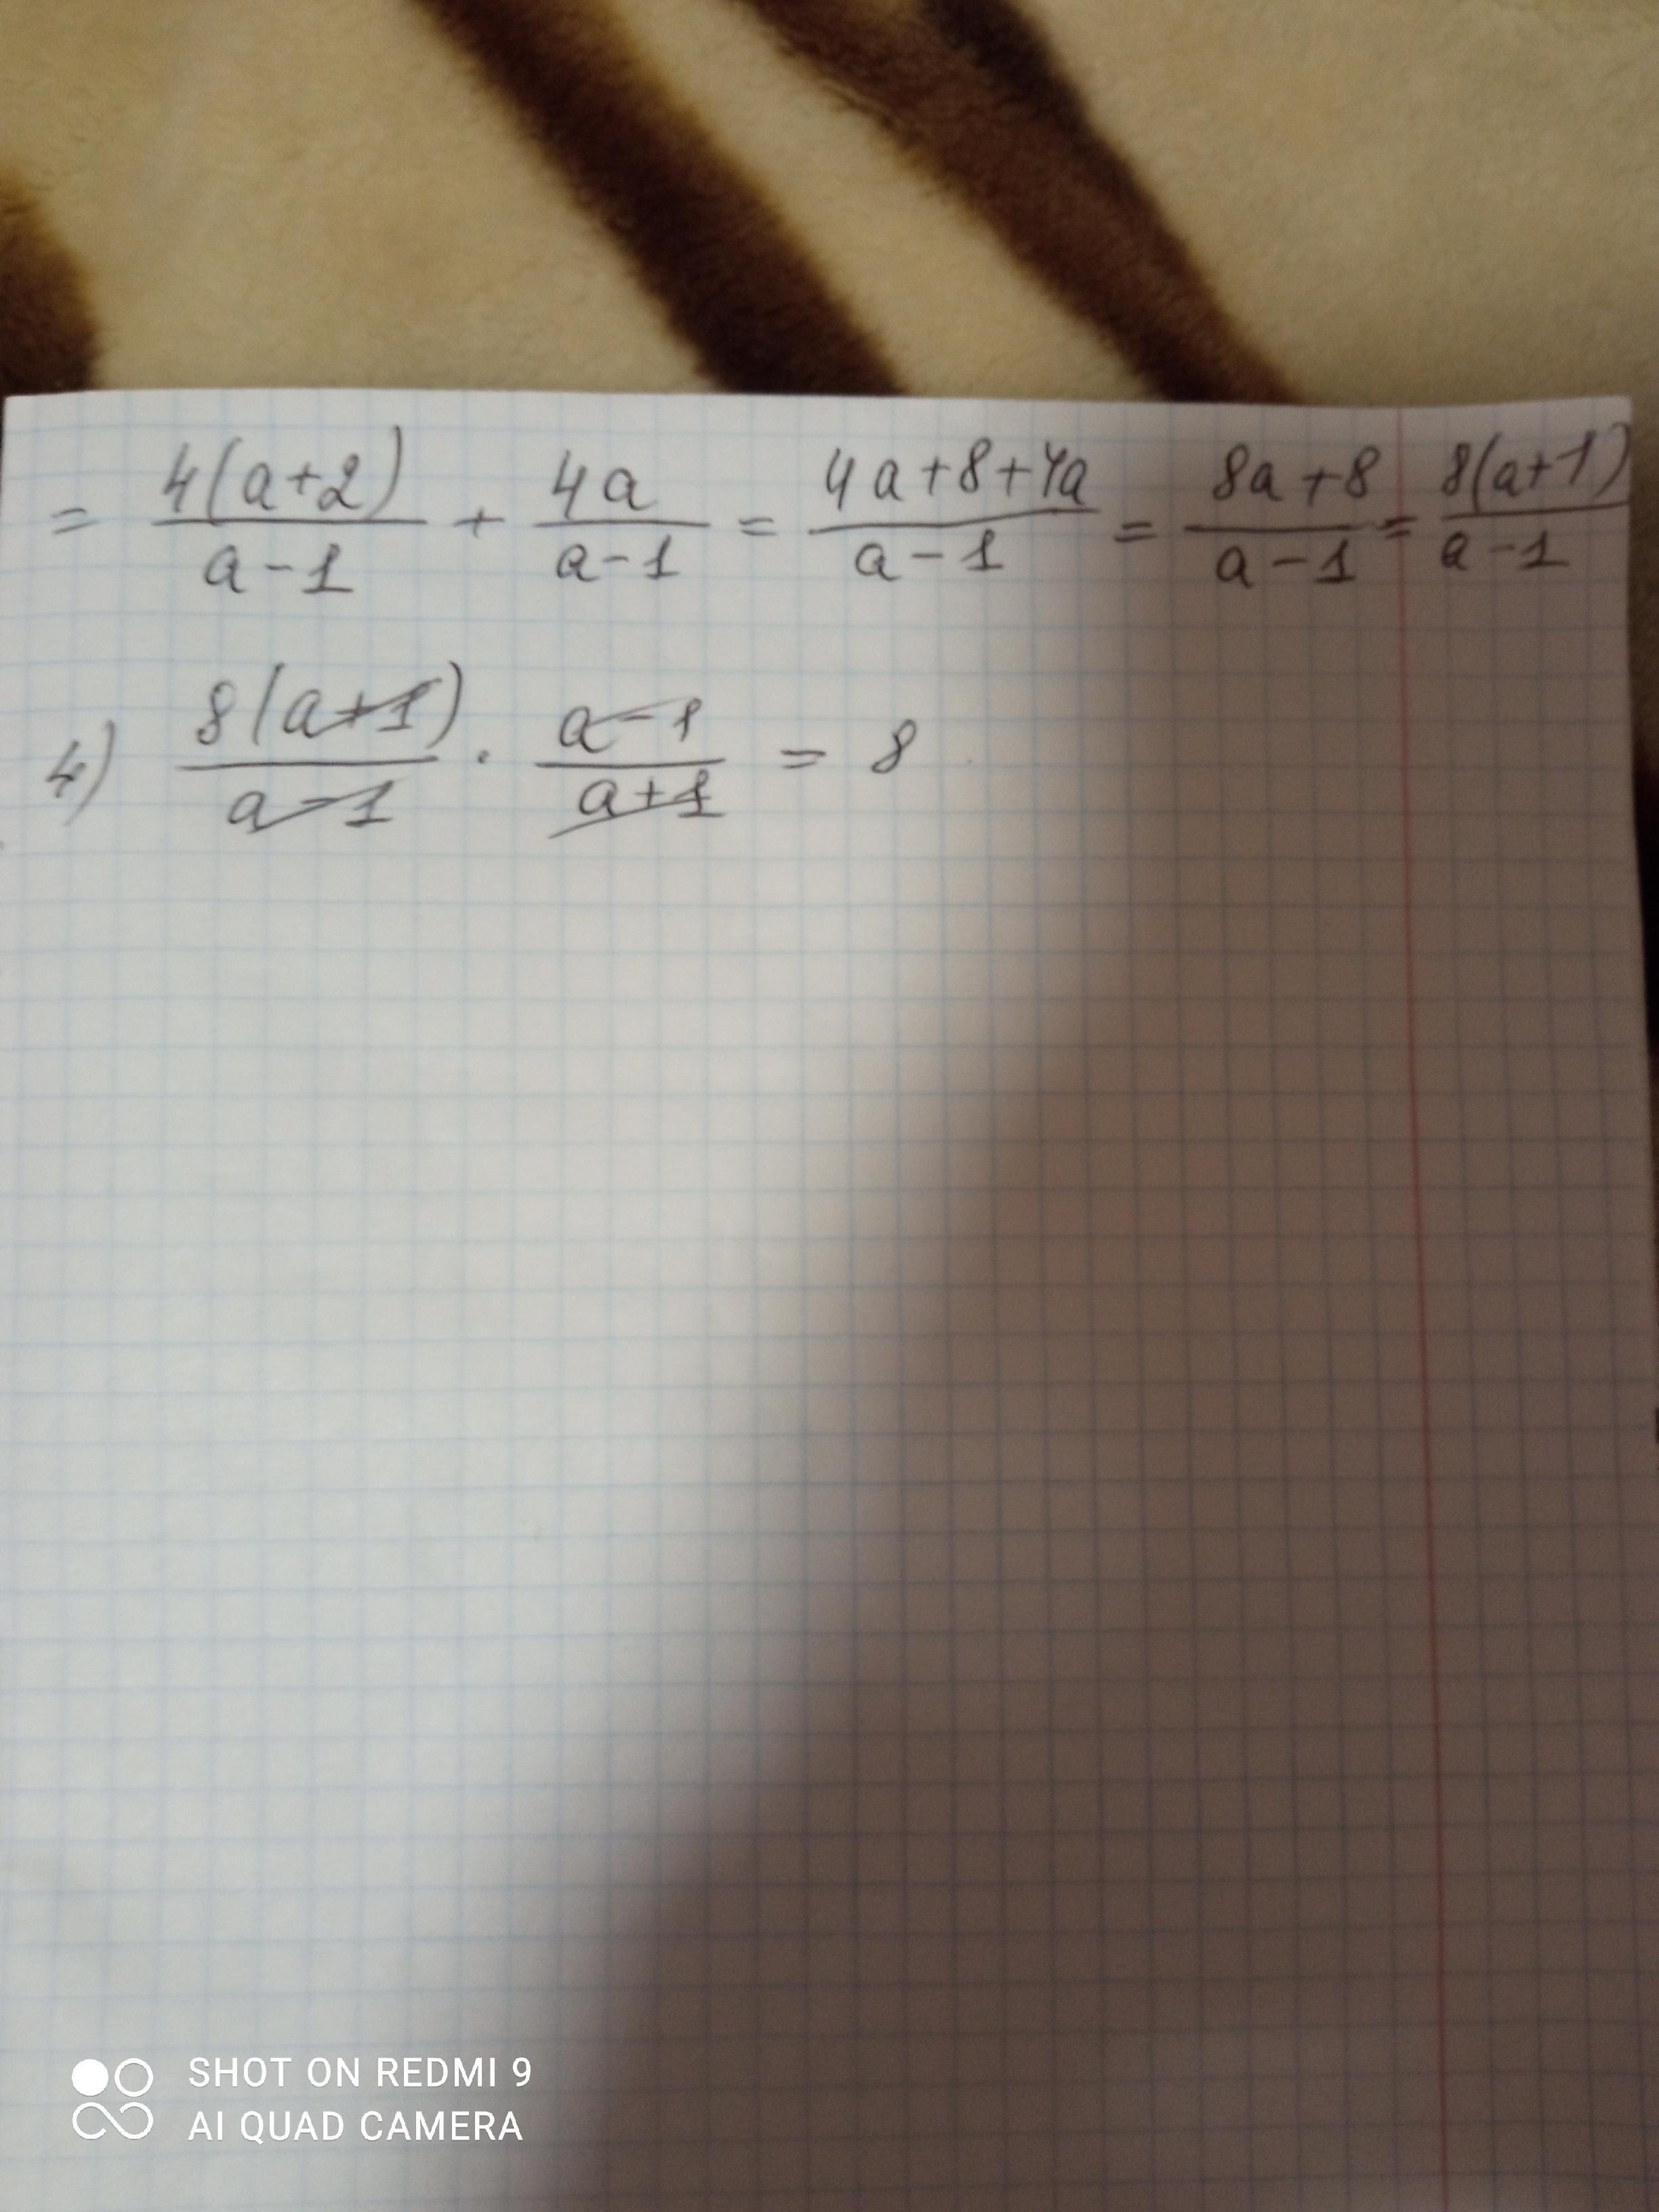 = 4(a+2)/(a-1) + 4a/(a-1) = (4a+8+4a)/(a-1) = (8a+8)/(a-1) = 8(a+1)/(a-1)
4) 8(a+1)/(a-1) · (a-1)/(a+1) = 8
SHOT ON REDMI 9
AI QUAD CAMERA